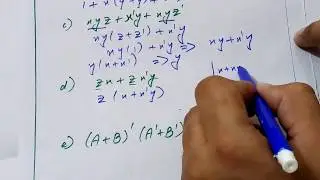 c) xyz + x'y + xyz'
xy(z+z') + x'y
xy(1) + x'y => xy + x'y
y(x+x') => y
d) zx + zx'y
z(x+x'y)
(x+x
e) (A+B)' (A'+B')